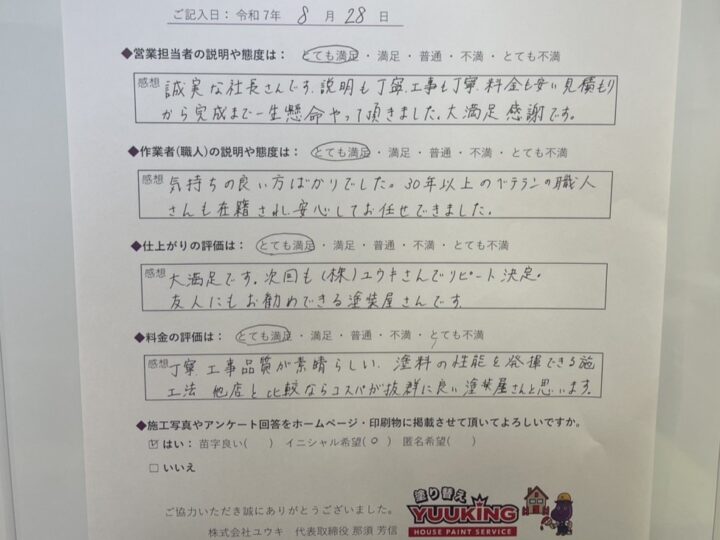 ご記入日：令和7年 8 月 28 日
◆営業担当者の説明や態度は： とても満足 ・ 満足 ・ 普通 ・ 不満 ・ とても不満
感想 誠実な社長さんです。説明も丁寧、工事も丁寧、料金も安い見積もり
から完成まで一生懸命やって頂きました。大満足 感謝です。
◆作業者(職人)の説明や態度は： とても満足 ・ 満足 ・ 普通 ・ 不満 ・ とても不満
感想 気持ちの良い方ばかりでした。30年以上のベテランの職人
さんも在籍され安心してお任せできました。
◆仕上がりの評価は： とても満足 ・ 満足 ・ 普通 ・ 不満 ・ とても不満
感想 大満足です。次回も(株)ユウキさんでリピート決定。
友人にもお勧めできる塗装屋さんです。
◆料金の評価は： とても満足 ・ 満足 ・ 普通 ・ 不満 ・ とても不満
感想 丁寧、工事品質が素晴らしい、塗料の性能を発揮できる施
工法 他店と比較ならコスパが抜群に良い塗装屋さんと思います。
◆施工写真やアンケート回答をホームページ・印刷物に掲載させて頂いてよろしいですか。
☑ はい： 苗字良い( ) イニシャル希望( ○ ) 匿名希望( )
□ いいえ
ご協力いただき誠にありがとうございました。
株式会社ユウキ 代表取締役 那須 芳信
塗り替え
YUUKING
HOUSE PAINT SERVICE